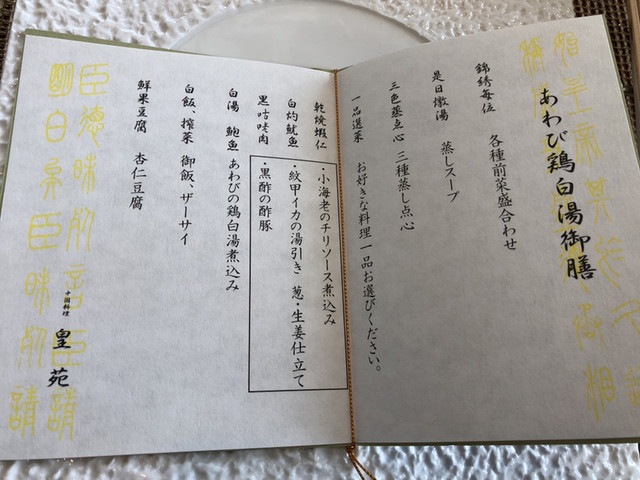 あわび鶏白湯御膳
錦綉每位 各種前菜盛合わせ
是日燉湯 蒸しスープ
三色蒸点心 三種蒸し点心
一品選菜 お好きな料理一品お選びください。
乾焼蝦仁 ・小海老のチリソース煮込み
白灼魷魚 ・紋甲イカの湯引き 葱・生姜仕立て
黒咕咾肉 ・黒酢の酢豚
白湯 鮑魚 あわびの鶏白湯煮込み
白飯、搾菜 御飯、ザーサイ
鮮果豆腐 杏仁豆腐
中国料理 皇苑